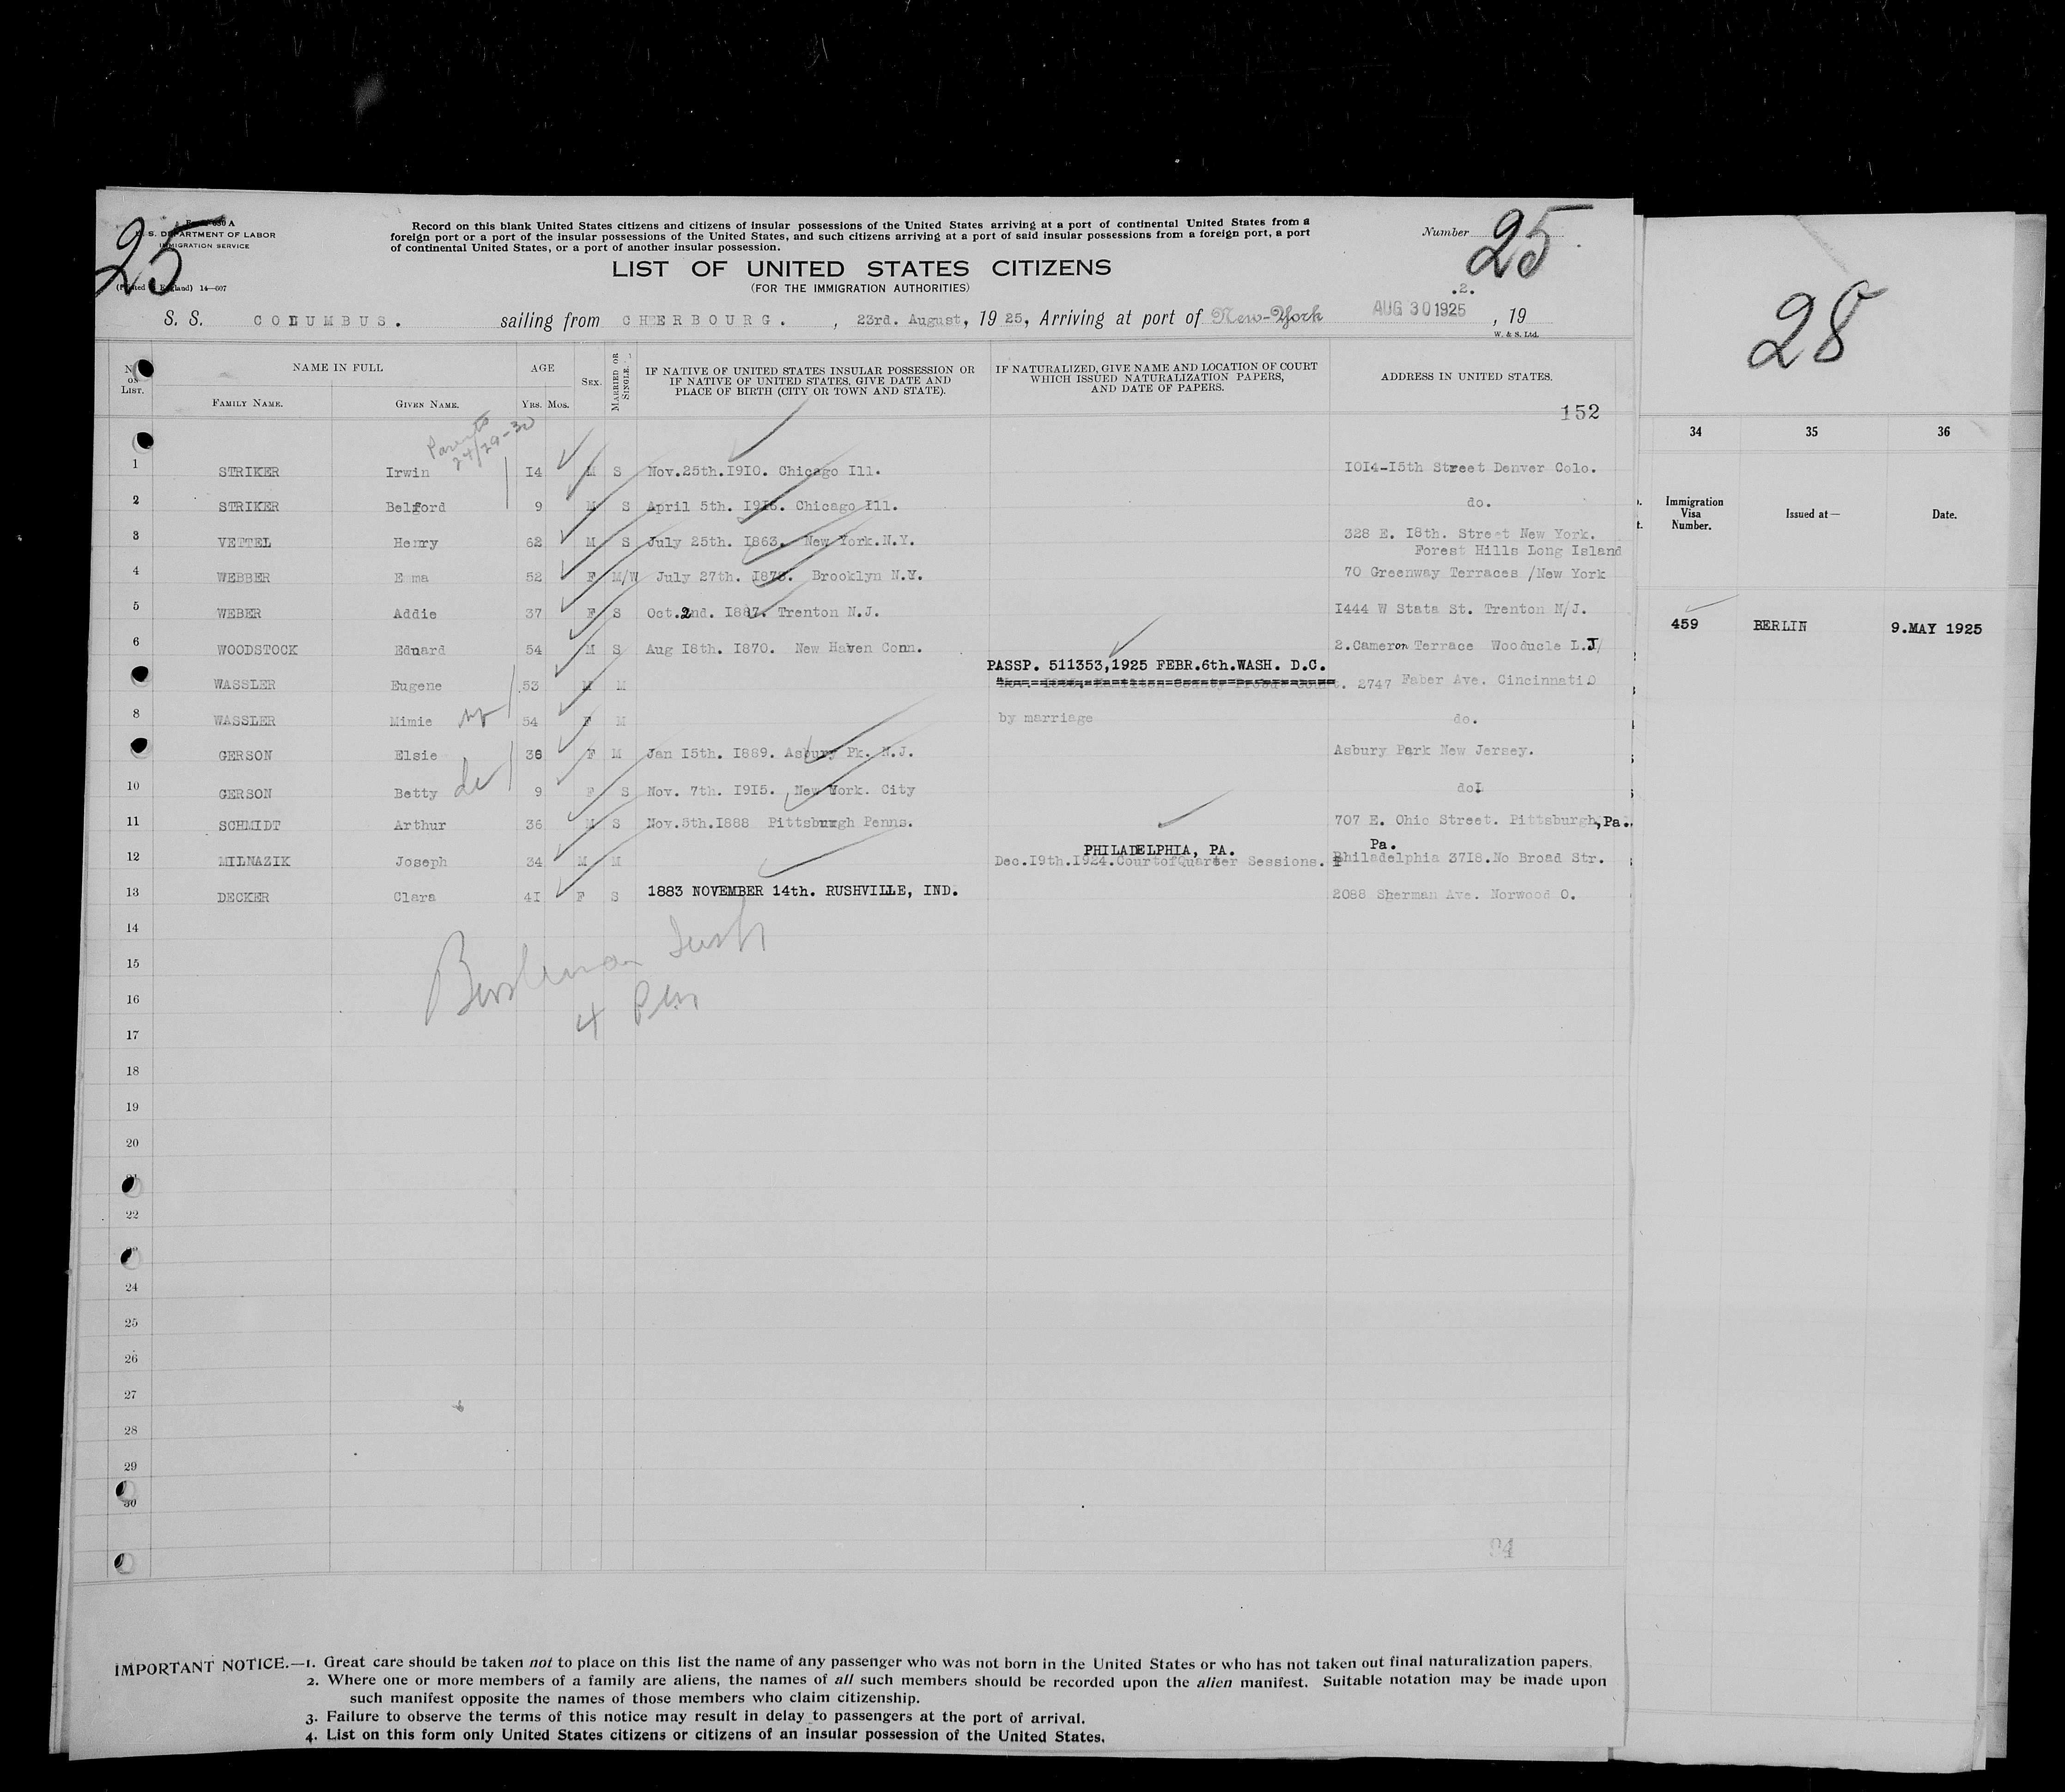 25
Form 630 A
U. S. DEPARTMENT OF LABOR
IMMIGRATION SERVICE
(Printed in England) 14—607
Record on this blank United States citizens and citizens of insular possessions of the United States arriving at a port of continental United States from a
foreign port or a port of the insular possessions of the United States, and such citizens arriving at a port of said insular possessions from a foreign port, a port
of continental United States, or a port of another insular possession.
LIST OF UNITED STATES CITIZENS
(FOR THE IMMIGRATION AUTHORITIES)
Number 25
.2.
S. S. COLUMBUS. sailing from CHERBOURG. , 23rd. August, 1925, Arriving at port of New-York AUG 30 1925 , 19
W. & S. Ltd.
No. on List.
NAME IN FULL
FAMILY NAME. GIVEN NAME.
AGE
YRS. MOS.
SEX.
MARRIED OR SINGLE.
IF NATIVE OF UNITED STATES INSULAR POSSESSION OR
IF NATIVE OF UNITED STATES, GIVE DATE AND
PLACE OF BIRTH (CITY OR TOWN AND STATE).
IF NATURALIZED, GIVE NAME AND LOCATION OF COURT
WHICH ISSUED NATURALIZATION PAPERS,
AND DATE OF PAPERS.
ADDRESS IN UNITED STATES.
152
Parents
24/29-30
1 STRIKER Irwin I4 M S Nov.25th.I9I0. Chicago Ill. I0I4-I5th Street Denver Colo.
2 STRIKER Belford 9 M S April 5th. I9I6. Chicago Ill. do.
3 VETTEL Henry 62 M S July 25th. I863. New York.N.Y. 328 E. I8th. Street New York.
Forest Hills Long Island
4 WEBBER Emma 52 F M/W July 27th. I873. Brooklyn N.Y. 70 Greenway Terraces /New York
5 WEBER Addie 37 F S Oct.2nd. I887. Trenton N.J. I444 W Stata St. Trenton N/J.
6 WOODSTOCK Eduard 54 M S Aug I8th. I870. New Haven Conn. 2.Cameron Terrace Wooducle L.J/
PASSP. 511353,1925 FEBR.6th.WASH. D.C.
WASSLER Eugene 53 M M Hamilton County Probat Court. 2747 Faber Ave. Cincinnati O
8 WASSLER Mimie 54 F M by marriage do.
GERSON Elsie 36 F M Jan I5th. I889. Asbury Pk. N.J. Asbury Park New Jersey.
10 GERSON Betty 9 F S Nov. 7th. I9I5. New York. City do.
11 SCHMIDT Arthur 36 M S Nov.5th.I888 Pittsburgh Penns. 707 E. Ohio Street. Pittsburgh,Pa.
PHILADELPHIA, PA. Pa.
12 MILNAZIK Joseph 34 M M Dec.I9th.I924.CourtofQuarter Sessions. Philadelphia 37I8.No Broad Str.
13 DECKER Clara 4I F S 1883 NOVEMBER 14th. RUSHVILLE, IND. 2088 Sherman Ave. Norwood O.
14
15
16
4
17
18
19
20
21
22
23
24
25
26
27
28
29
30
IMPORTANT NOTICE.—1. Great care should be taken not to place on this list the name of any passenger who was not born in the United States or who has not taken out final naturalization papers.
2. Where one or more members of a family are aliens, the names of all such members should be recorded upon the alien manifest. Suitable notation may be made upon
such manifest opposite the names of those members who claim citizenship.
3. Failure to observe the terms of this notice may result in delay to passengers at the port of arrival.
4. List on this form only United States citizens or citizens of an insular possession of the United States.
28
34 35 36
Immigration Visa Number. Issued at— Date.
459 BERLIN 9.MAY 1925